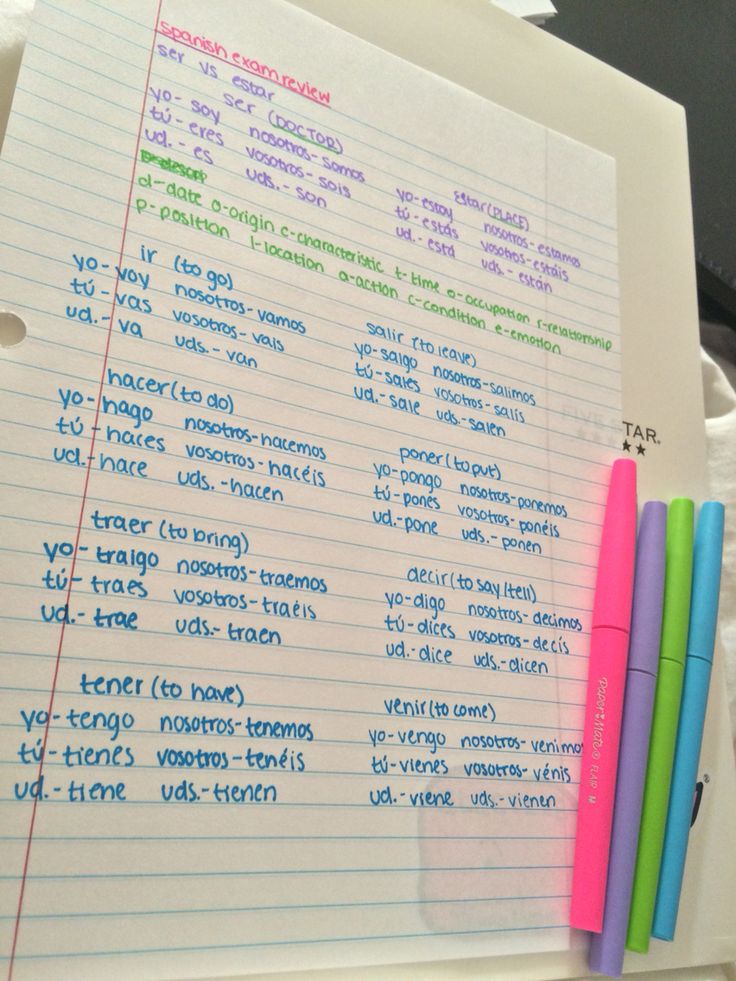 spanish exam review
ser vs estar
ser (DOCTOR)
yo-soy nosotros-somos
tú-eres vosotros-sois
ud.-es uds.-son
estar (PLACE)
yo-estoy nosotros-estamos
tú-estás vosotros-estáis
ud.-está uds.-están
d-date o-origin c-characteristic t-time o-occupation r-relationship
p-position l-location a-action c-condition e-emotion
ir (to go)
yo-voy nosotros-vamos
tú-vas vosotros-vais
ud.-va uds.-van
salir (to leave)
yo-salgo nosotros-salimos
tú-sales vosotros-salís
ud.-sale uds.-salen
hacer (to do)
yo-hago nosotros-hacemos
tú-haces vosotros-hacéis
ud.-hace uds.-hacen
poner (to put)
yo-pongo nosotros-ponemos
tú-pones vosotros-ponéis
ud.-pone uds.-ponen
traer (to bring)
yo-traigo nosotros-traemos
tú-traes vosotros-traéis
ud.-trae uds.-traen
decir (to say/tell)
yo-digo nosotros-decimos
tú-dices vosotros-decís
ud.-dice uds.-dicen
tener (to have)
yo-tengo nosotros-tenemos
tú-tienes vosotros-tenéis
ud.-tiene uds.-tienen
venir (to come)
yo-vengo nosotros-venimos
tú-vienes vosotros-vénis
ud.-viene uds.-vienen
FIVE STAR®
Paper Mate® FLAIR M